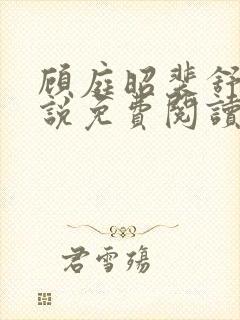 顾庭昭裴舒
說免費閱讀
君雪殤